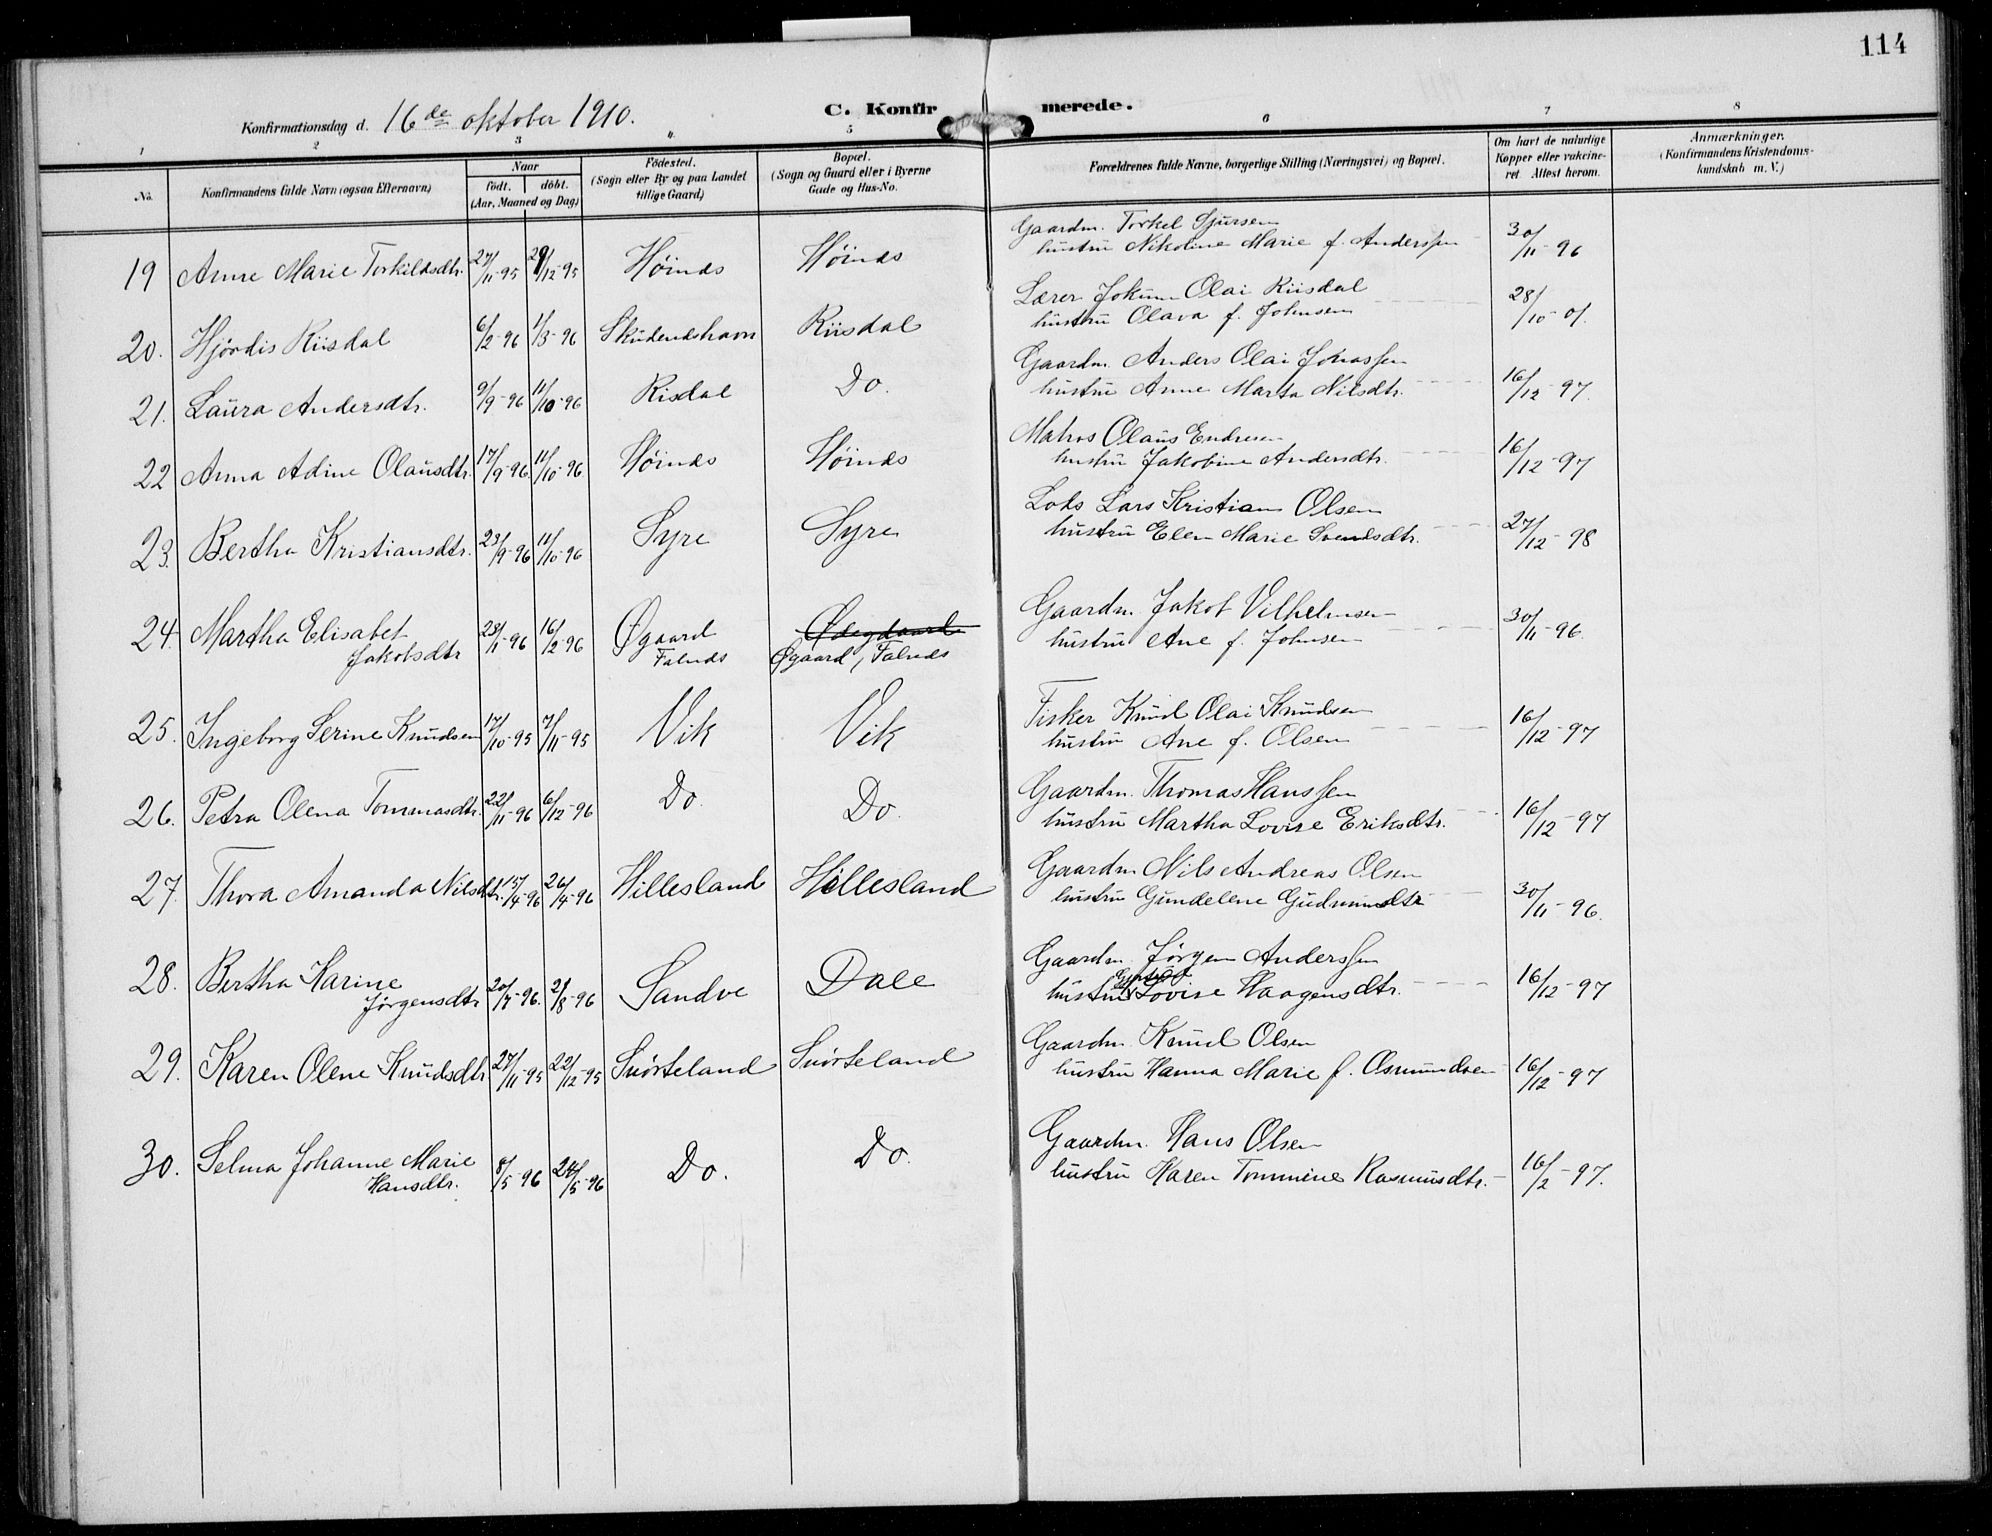 114
Konfirmationsdag d. 16de oktober 1910. C. Konfirmerede.
1 2 3 4. 5 6 7 8
No. Konfirmandens fulde Navn (ogsaa Efternavn) Naar født. døbt. (Aar, Maaned og Dag) Fødested. (Sogn eller By og paa Landet tillige Gaard) Bopæl. (Sogn og Gaard eller i Byerne Gade og Hus-No. Forældrenes fulde Navne, borgerlige Stilling (Næringsvei) og Bopæl. Om havt de naturlige Kopper eller vakcineret. Attest herom. Anmærkninger. (Konfirmandens Kristendomskundskab m. V.)
Gaardm. Torkel Sjursen
19 Anne Marie Torkildsdtr. 27/11-95 29/12-95 Höinds Höinds hustru Nikoline Marie f. Anderssen 30/11-96
Lærer Jokum Olai Riisdal
20. Hjördis Riisdal 6/2-96 1/3-96 Skudenshavn Riisdal hustru Olava f. Johnsen 28/10-01.
Gaardm. Anders Olai Jonassen
21. Laura Andersdtr. 9/9-96 11/10-96 Risdal Do. hustru Anne Marta Nilsdtr. 16/12-97.
Matros Olaus Endresen
22 Anna Adine Olausdtr. 17/9-96 11/10-96 Höinds Höinds hustru Jakobine Andersdtr. 16/12-97
Lots Lars Kristian Olsen
23. Bertha Kristiansdtr. 23/9-96 11/10-96 Syre Syre hustru Elen Marie Svendsdtr. 27/12-98
Gaardm. Jakob Vilhelmsen
24. Martha Elisabet Jakobsdtr 23/1-96 16/2-96 Øgaard Falnds Ødegdaard Øgaard, Falnds hustru Ane f. Johnsen 30/11-96.
Fisker Knud Olai Knudsen
25. Ingeborg Serine Knudsen 17/10-95 7/11-95 Vik Vik hustru Ane f. Olsen 16/12-97
Gaardm. Thomas Hanssen
26. Petra Olena Tommasdtr. 22/11-96 6/12-96 Do. Do. hustru Martha Lovise Eriksdtr. 16/12-97
Gaardm Nils Andreas Olsen
27. Thora Amanda Nilsdtr. 15/4-96 26/4-96 Hillesland Hillesland hustru Gundelene Gudmundsdtr 30/11-96.
Gaardm. Jørgen Anderssen
28. Bertha Karine Jørgensdtr 20/7-96. 2/8-96 Sandve Dale hustru Lovise Haagensdtr. 16/12-97
Gaardm. Knud Olsen
29. Karen Olene Knudsdtr 27/11-95 22/12-95 Snörteland Snörteland hustru Hanna Marie f. Osmundsen 16/12-97
Gaardm. Hans Olsen
30. Selma Johanne Marie Hansdtr. 8/5-96 24/5-96 Do. Do. hustru Karen Tommine Rasmusdtr. 16/2-97.